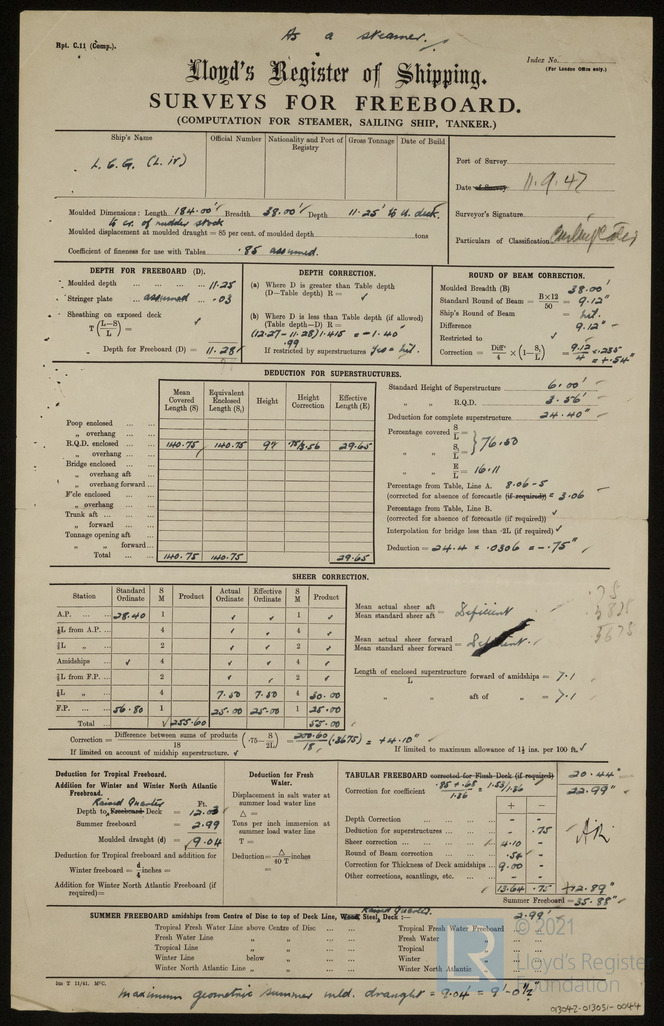 As a steamer.
Rpt. C.11 (Comp.).
Index No.
(For London Office only.)
Lloyd's Register of Shipping.
SURVEYS FOR FREEBOARD.
(COMPUTATION FOR STEAMER, SAILING SHIP, TANKER.)
Ship's Name Official Number Nationality and Port of Registry Gross Tonnage Date of Build
Port of Survey
Date of Survey 11.9.47
Surveyor's Signature
Particulars of Classification
Moulded Dimensions: Length 184.00' Breadth 38.00' Depth 11.25' to U. deck.
to cr. of rudder stock
Moulded displacement at moulded draught = 85 per cent. of moulded depth tons
Coefficient of fineness for use with Tables .85 assumed.
DEPTH FOR FREEBOARD (D).
Moulded depth 11.25
Stringer plate assumed .03
Sheathing on exposed deck
T (L-S/L) =
Depth for Freeboard (D) = 11.28
DEPTH CORRECTION.
(a) Where D is greater than Table depth
(D-Table depth) R =
(b) Where D is less than Table depth (if allowed)
(Table depth-D) R =
(12.27-11.28) 1.415 = -1.40"
.99
If restricted by superstructures Yes = Nil.
ROUND OF BEAM CORRECTION.
Moulded Breadth (B) 38.00'
Standard Round of Beam = B×12/50 = 9.12"
Ship's Round of Beam = Nil.
Difference 9.12"
Restricted to
Correction = Diff/4 × (1-S₁/L) = 9.12/4 × .235
= +.54"
DEDUCTION FOR SUPERSTRUCTURES.
Mean Covered Length (S) Equivalent Enclosed Length (S₁) Height Height Correction Effective Length (E)
Poop enclosed
„ overhang
R.Q.D. enclosed 140.75 140.75 29.65
„ overhang
Bridge enclosed
„ overhang aft
„ overhang forward
F'cle enclosed
„ overhang
Trunk aft
„ forward
Tonnage opening aft
„ „ forward
Total 140.75 140.75 29.65
Standard Height of Superstructure 6.00'
„ „ R.Q.D. 3.56'
Deduction for complete superstructure 24.40"
Percentage covered S/L =
„ „ S₁/L = 76.50
„ „ E/L = 16.11
Percentage from Table, Line A. 8.06-5
(corrected for absence of forecastle (if required)) = 3.06
Percentage from Table, Line B.
(corrected for absence of forecastle (if required))
Interpolation for bridge less than ·2L (if required)
Deduction = 24.4 × .0306 = -.75"
SHEER CORRECTION.
Station Standard Ordinate S M Product Actual Ordinate Effective Ordinate S M Product
A.P. 28.40 1 1
⅙L from A.P. 4 4
⅓L „ 2 2
Amidships 4 4
⅓L from F.P. 2 2
⅙L „ 4 7.50 7.50 4 30.00
F.P. 56.80 1 25.00 25.00 1 25.00
Total 255.60 55.00
Mean actual sheer aft
Mean standard sheer aft = Deficient
Mean actual sheer forward
Mean standard sheer forward = Deficient.
Length of enclosed superstructure/L forward of amidships = 7.1
„ „ aft of „ = 7.1
Correction = Difference between sums of products/18 (·75-S/2L) = 200.60/18 (.3675) = +4.10"
If limited on account of midship superstructure.
If limited to maximum allowance of 1½ ins. per 100 ft.
Deduction for Tropical Freeboard.
Addition for Winter and Winter North Atlantic Freeboard.
Raised Quarter Ft.
Depth to Freeboard Deck = 12.03
Summer freeboard = 2.99
Moulded draught (d) = 9.04
Deduction for Tropical freeboard and addition for
Winter freeboard = d/4 inches =
Addition for Winter North Atlantic Freeboard (if required)=
Deduction for Fresh Water.
Displacement in salt water at summer load water line
△ =
Tons per inch immersion at summer load water line
T =
Deduction = △/40 T inches
=
TABULAR FREEBOARD corrected for Flush Deck (if required) 20.44"
Correction for coefficient .85 + .68/1.36 = 1.53/1.36 22.99"
+ -
Depth Correction - -
Deduction for superstructures - .75
Sheer correction 4.10 -
Round of Beam correction .54 -
Correction for Thickness of Deck amidships 9.00 -
Other corrections, scantlings, etc. - -
13.64 .75 +12.89"
Summer Freeboard = 35.88"
SUMMER FREEBOARD amidships from Centre of Disc to top of Deck Line, Wood Steel, Raised Quarter. Deck :— 2.99'
Tropical Fresh Water Line above Centre of Disc
Fresh Water Line „ „
Tropical Line „ „
Winter Line below „
Winter North Atlantic Line „ „
Tropical Fresh Water Freeboard
Fresh Water „
Tropical „
Winter „
Winter North Atlantic „
1m T 11/41. MºC.
Maximum geometric summer mld. draught = 9.04' = 9'-0½"
© 2021
Lloyd's Register
Foundation
013042-013051-0044